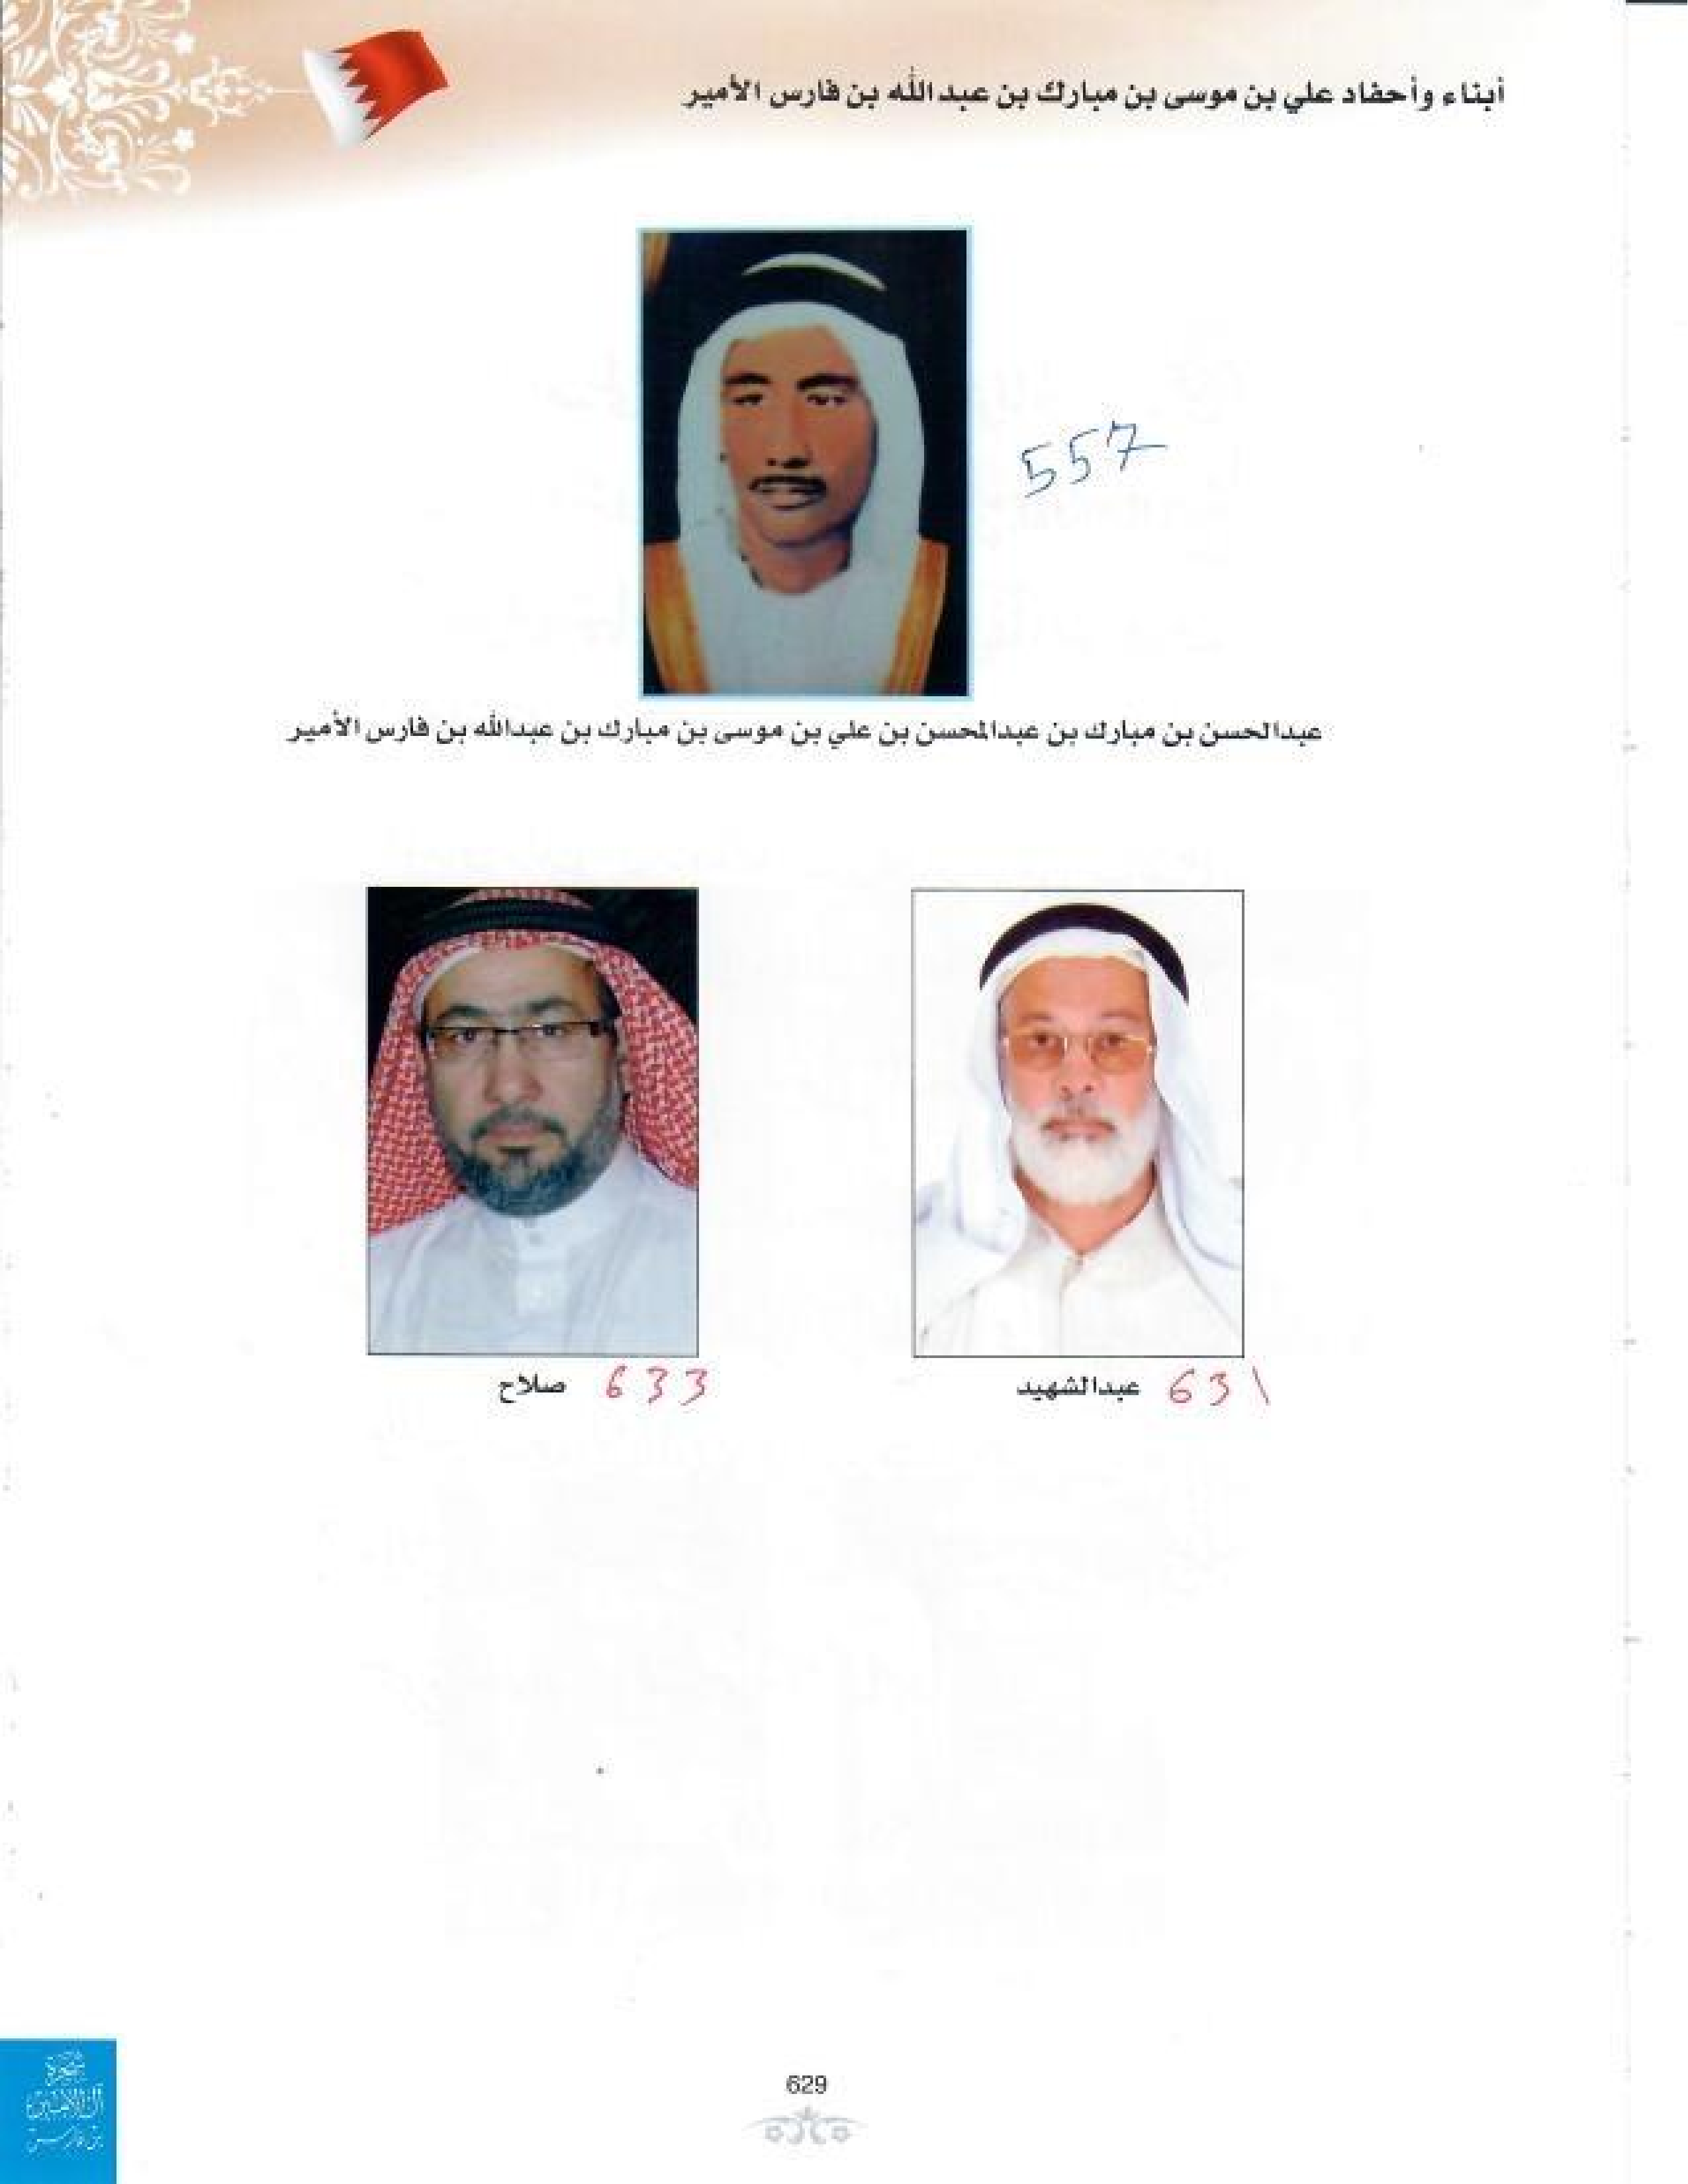 أبناء وأحفاد علي بن موسى بن مبارك بن عبدالله بن فارس الأمير
557
عبدالحسن بن مبارك بن عبدالمحسن بن علي بن موسى بن مبارك بن عبدالله بن فارس الأمير
عبدالشهيد 631
صلاح 633
629
شجرة
آل الأمير
بن فارس